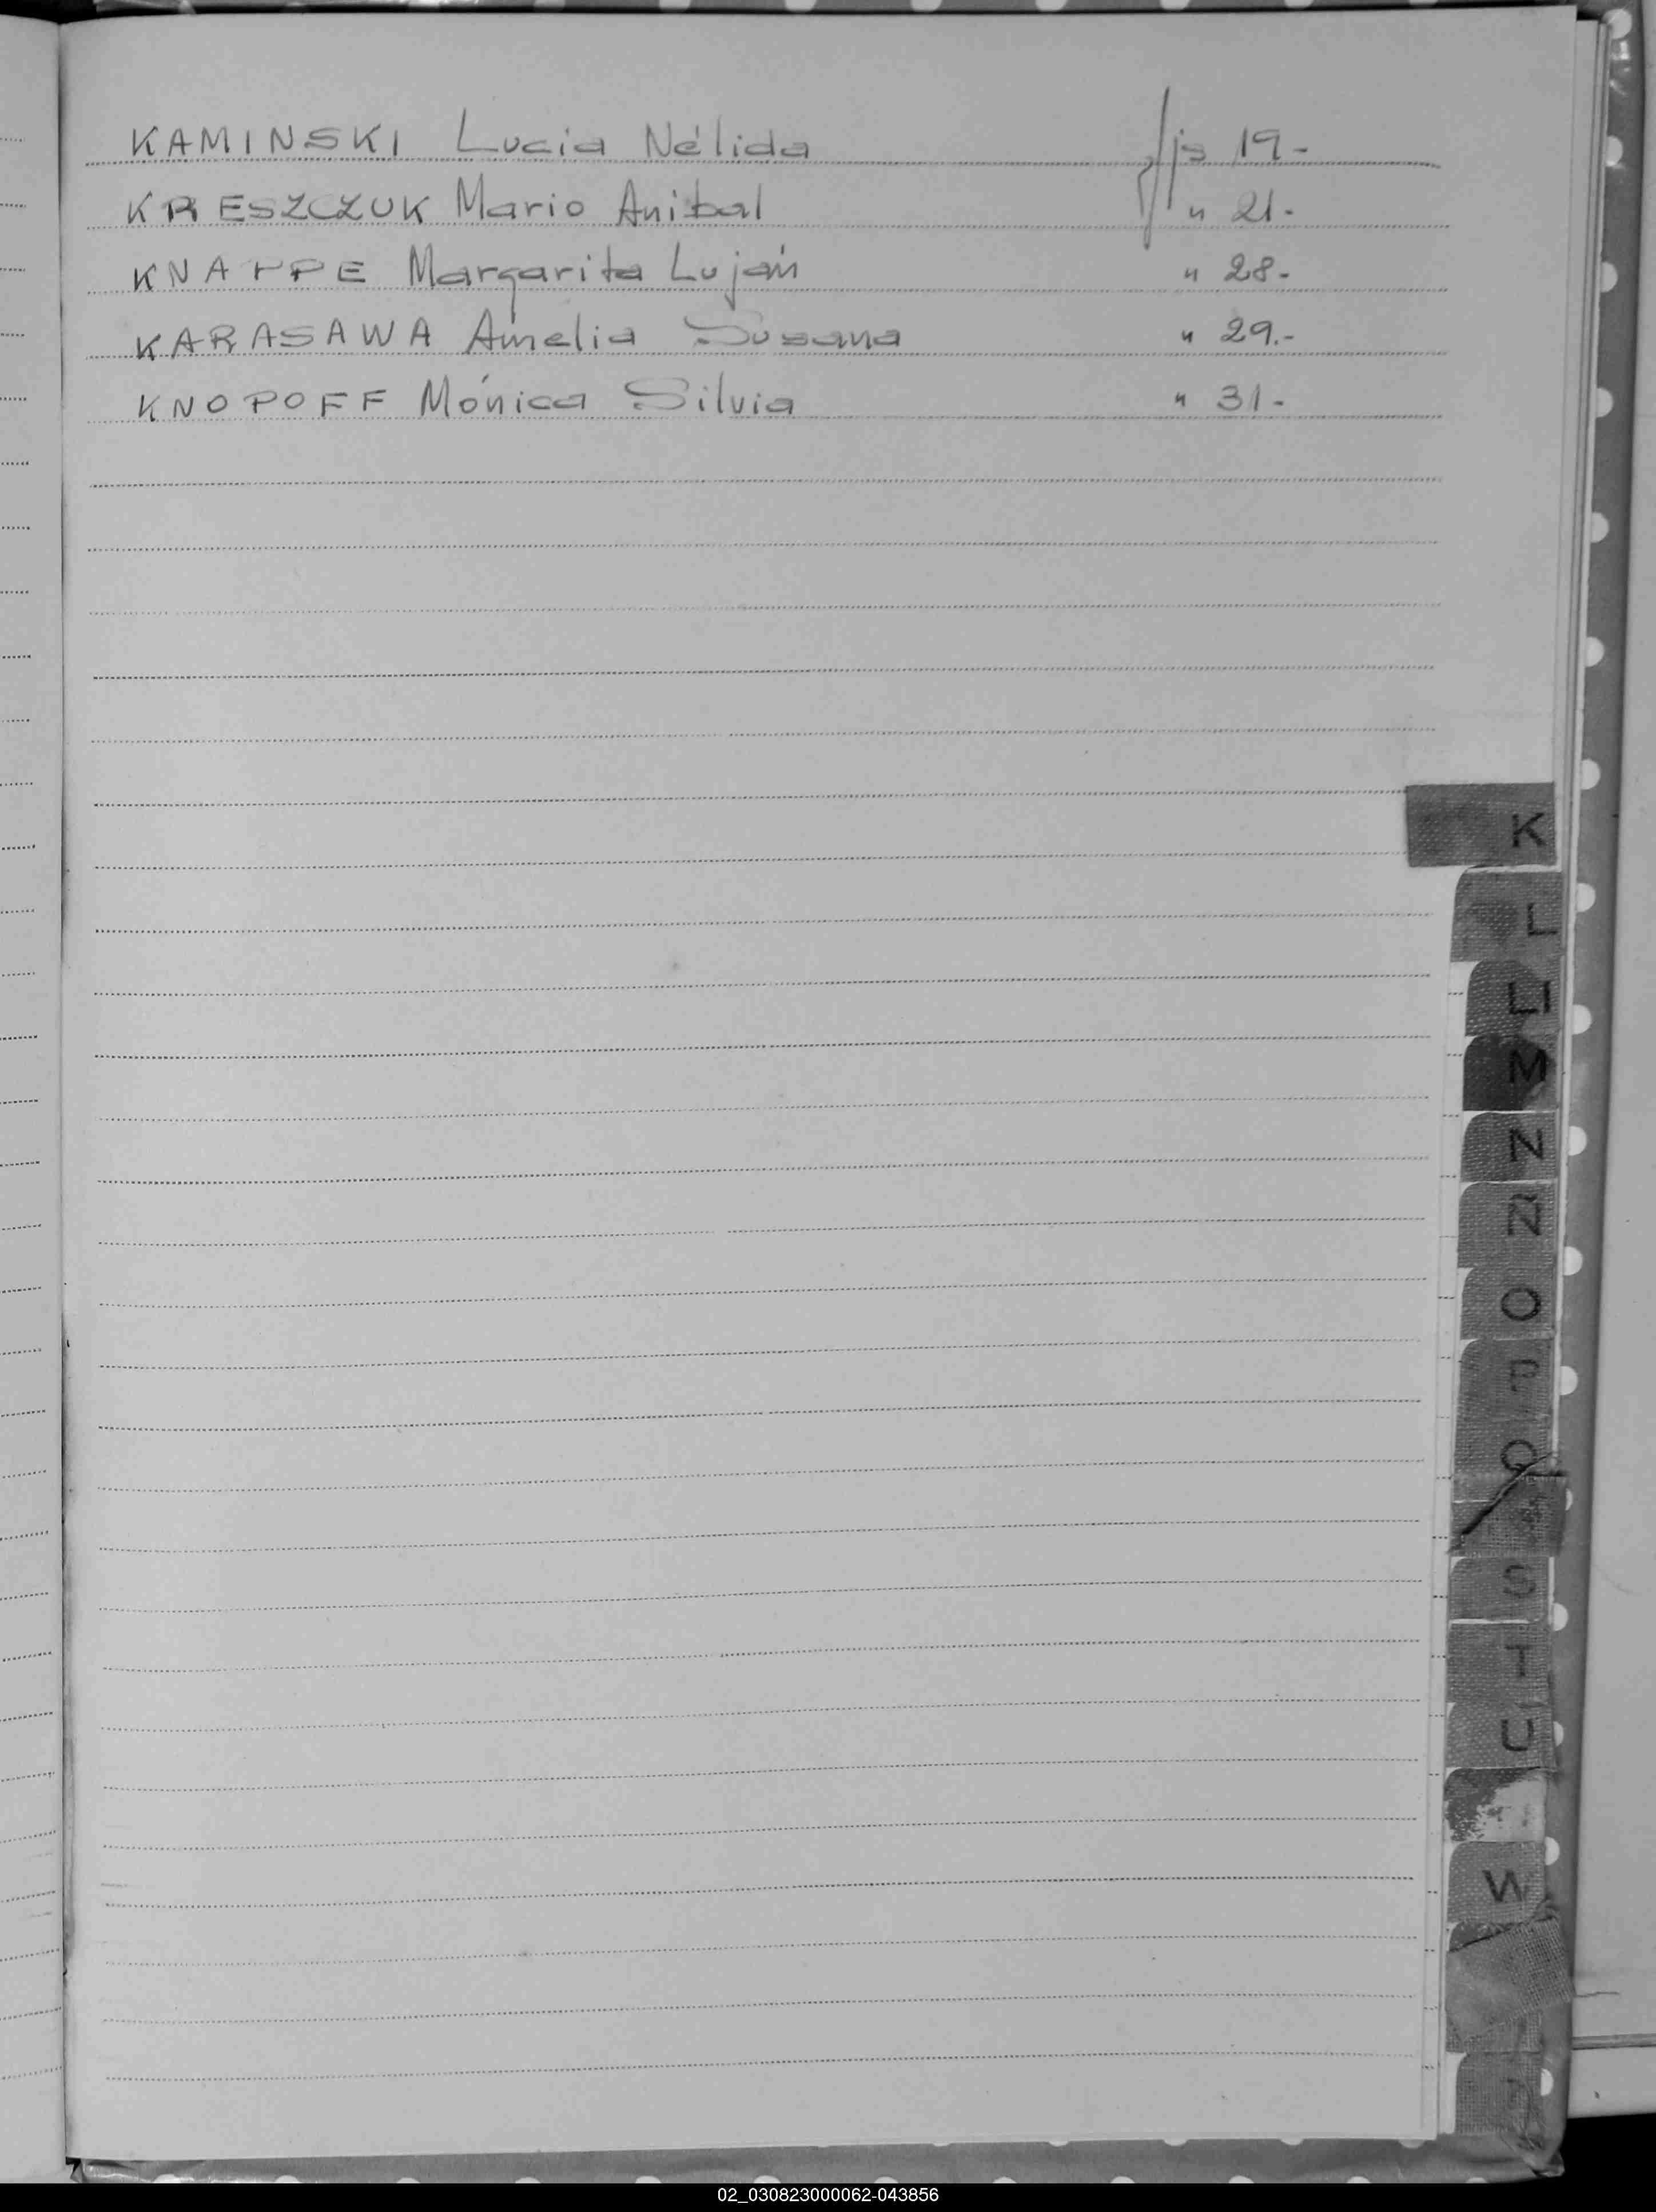 KAMINSKI Lucia Nélida fjs 19.-
KRESZCZUK Mario Anibal " 21.-
KNAPPE Margarita Luján " 28.-
KARASAWA Amelia Susana " 29.-
KNOPOFF Mónica Silvia " 31.-
K
L
LL
M
N
Ñ
O
P
Q
S
T
U
W
02_030823000062-043856